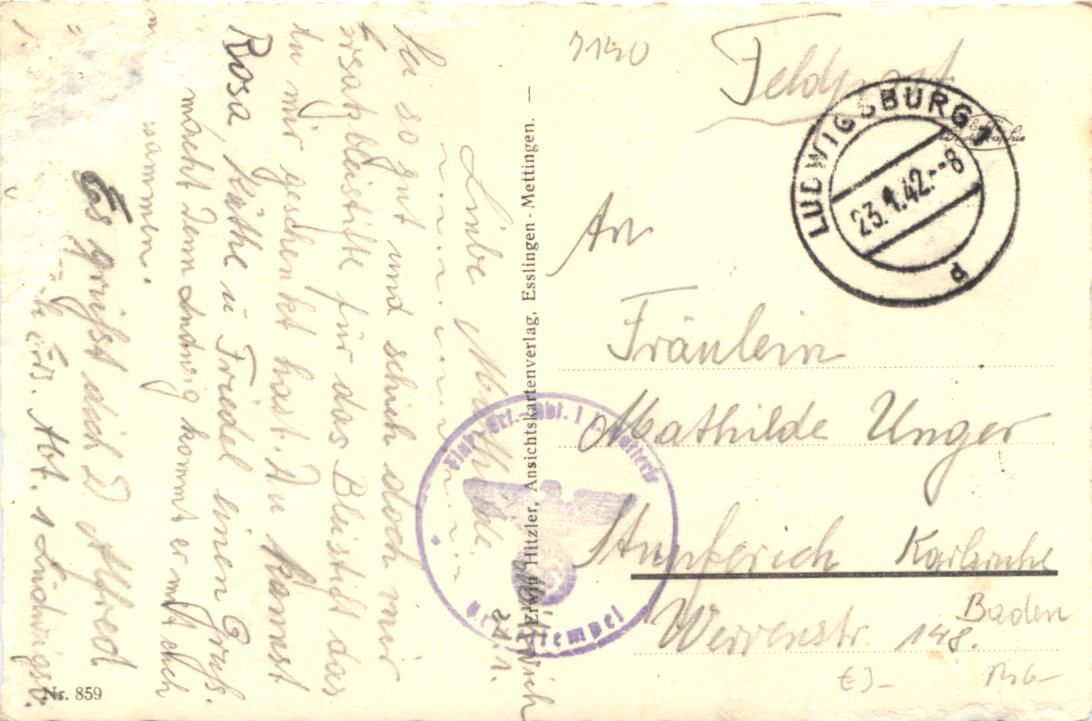 Liebe Mathilde.
Sei so gut und schick doch mir
Ersatzbleistifte für das Bleistift das
du mir geschenkt hast. Du kannst
Rosa Käthe u Friedel einen Gruß.
macht Denn Ludwig kommt er mit euch
zusammen.
Es grüßt dich D Alfred
Ers. Abt. 1 Ludwigsb.
Nr. 859
Erwin Hitzler, Ansichtskartenverlag, Esslingen - Mettingen.
7140
Feldpost
LUDWIGSBURG 1
23.1.42.--8
d
An
Fräulein
Mathilde Unger
Stupferich Karlsruhe
Baden
Werrenstr. 148.
€3-